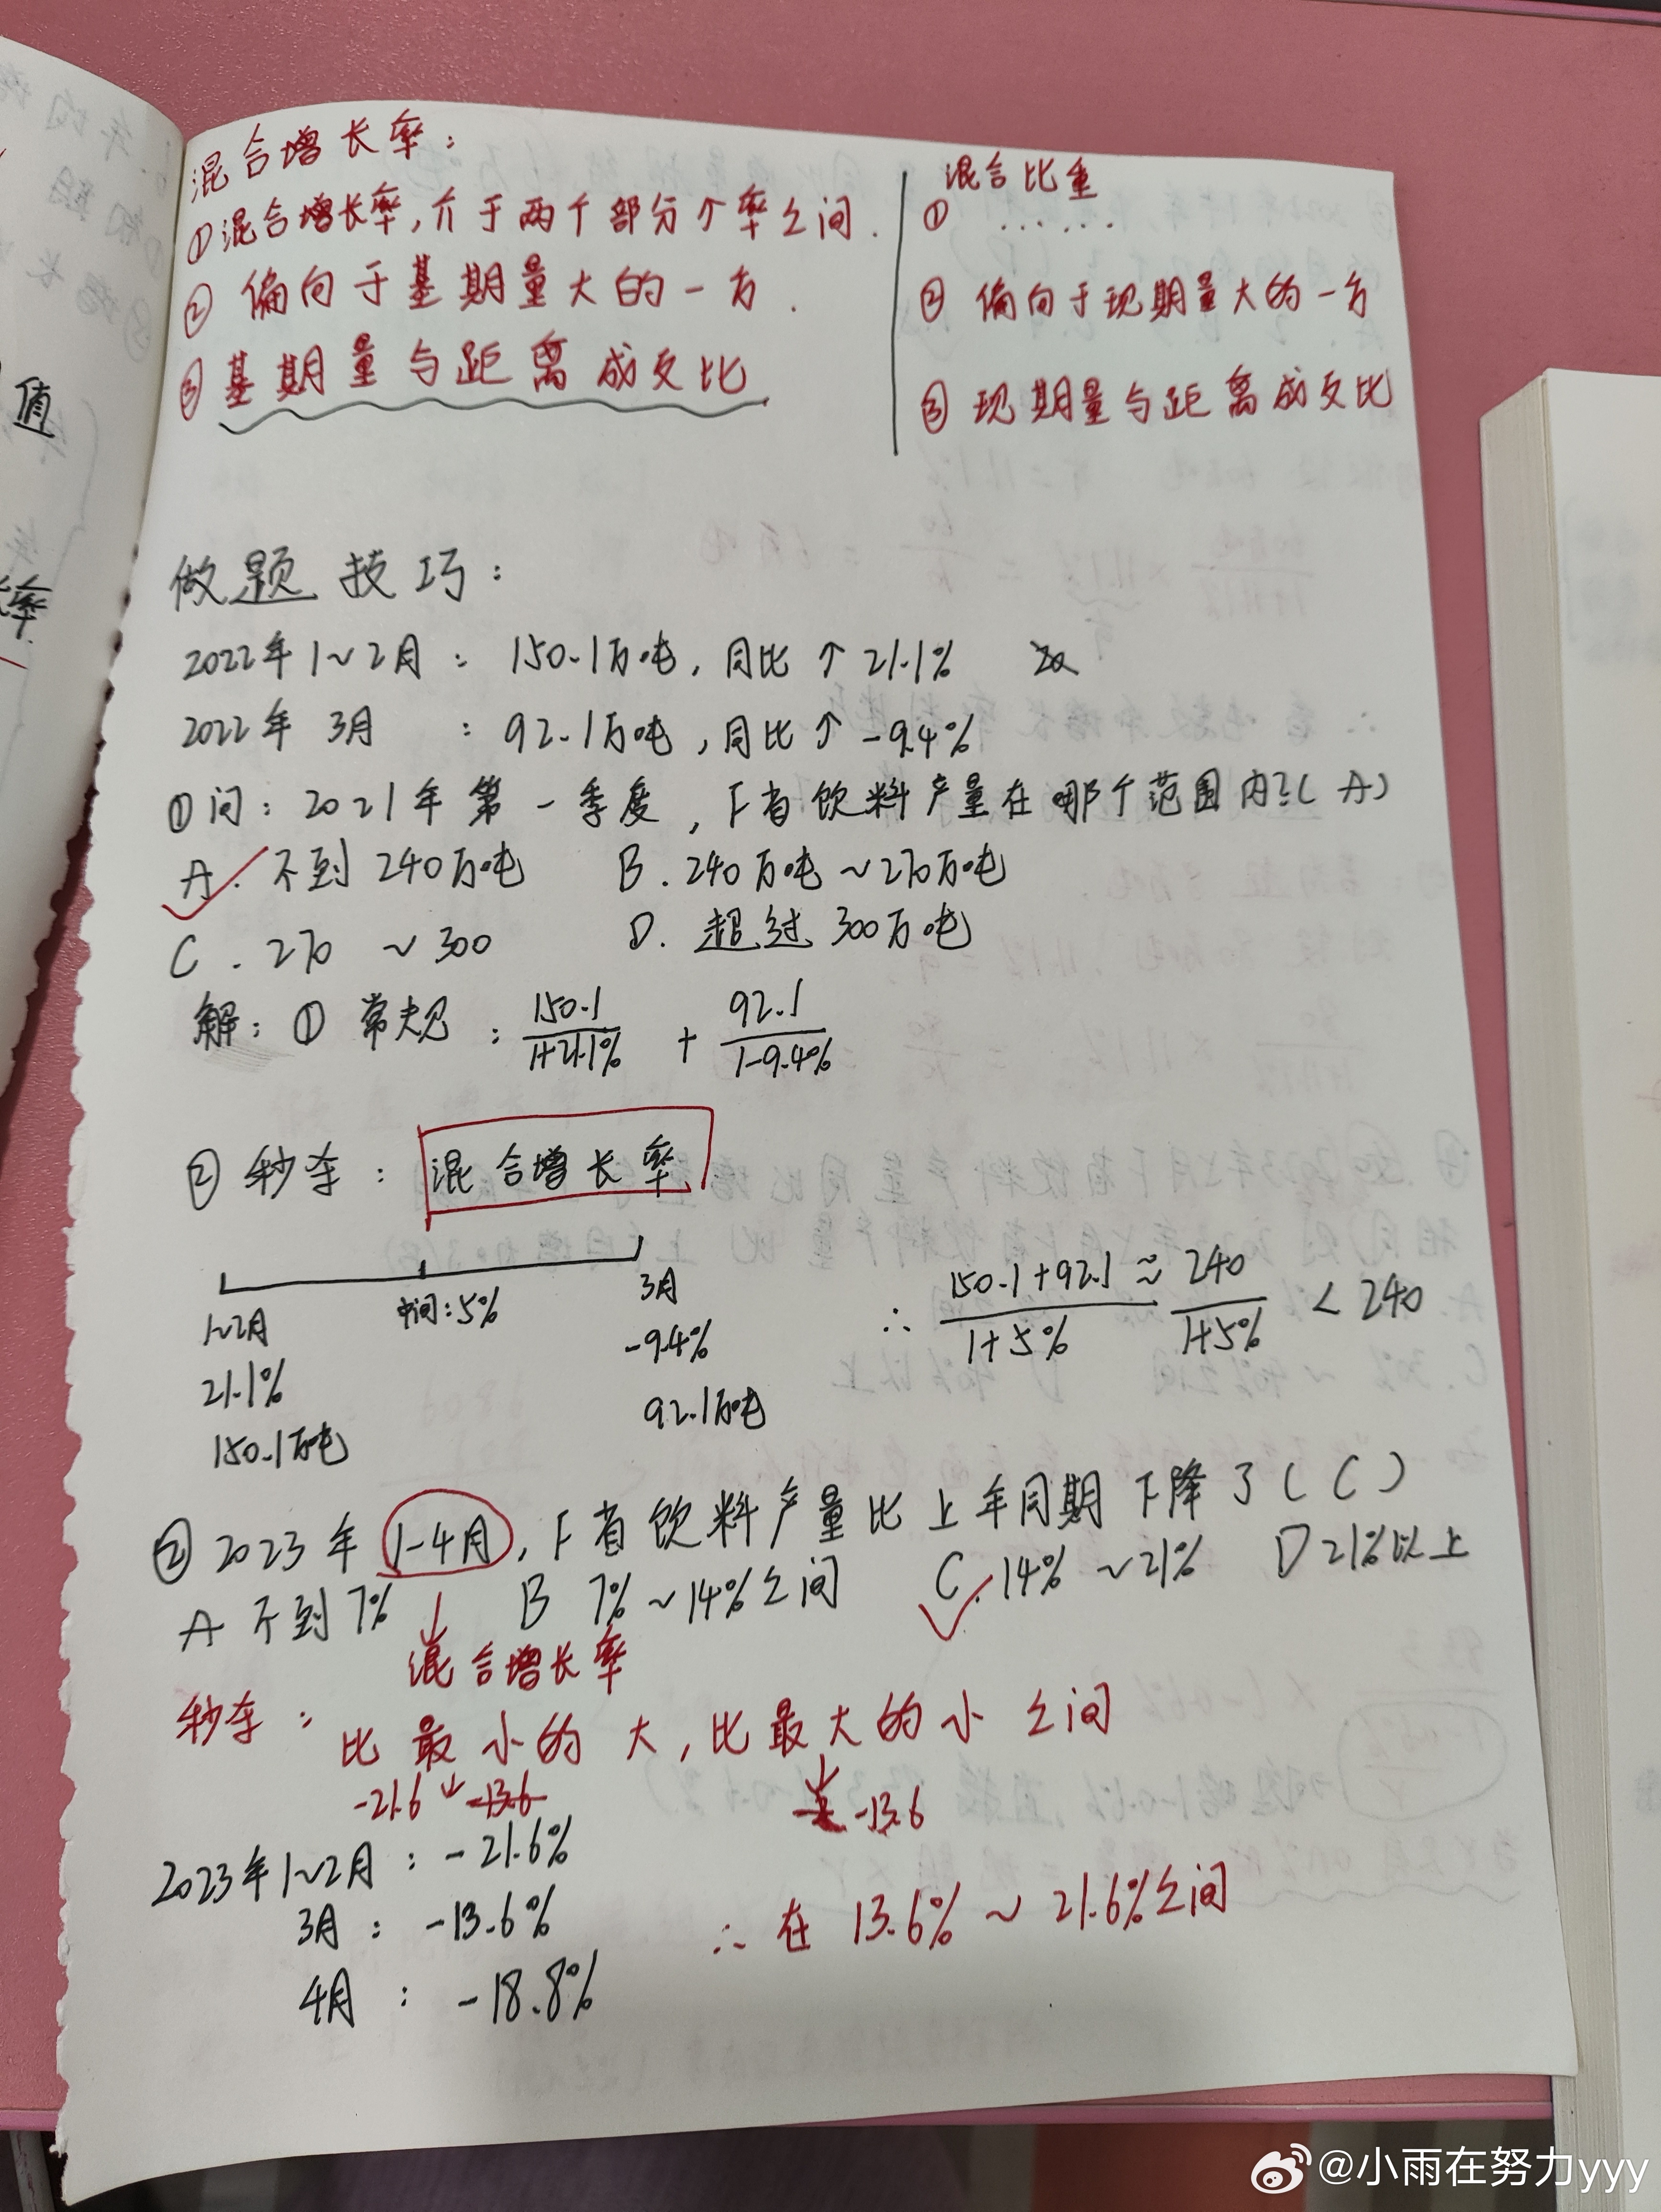 混合增长率：
①混合增长率，介于两个部分个率之间.
② 偏向于基期量大的一方.
③基期量与距离成反比
混合比重
① ……
② 偏向于现期量大的一方
③ 现期量与距离成反比
值
率
做题技巧：
2022年1~2月：150.1万吨，同比↑21.1%
2022年 3月：92.1万吨，同比↑-9.4%
①问：2021年第一季度，F省饮料产量在哪个范围内？(A)
A. 不到240万吨 B. 240万吨~270万吨
C. 270 ~300 D. 超过300万吨
解：① 常规：150.1/1+21.1% + 92.1/1-9.4%
② 秒杀：混合增长率
1~2月 中间：5% 3月
21.1% -9.4%
150.1万吨 92.1万吨
∴ 150.1+92.1/1+5% ≈ 240/1+5% < 240
② 2023年1-4月，F省饮料产量比上年同期下降了(C)
A 不到7% B 7%~14%之间 C. 14%~21% D 21%以上
↓
混合增长率
秒杀：比最小的大，比最大的小之间
-21.6 ↓ -13.6 ↓ -13.6
2023年1~2月：-21.6%
3月：-13.6%
4月：-18.8%
∴ 在 13.6% ~ 21.6%之间
@小雨在努力yyy